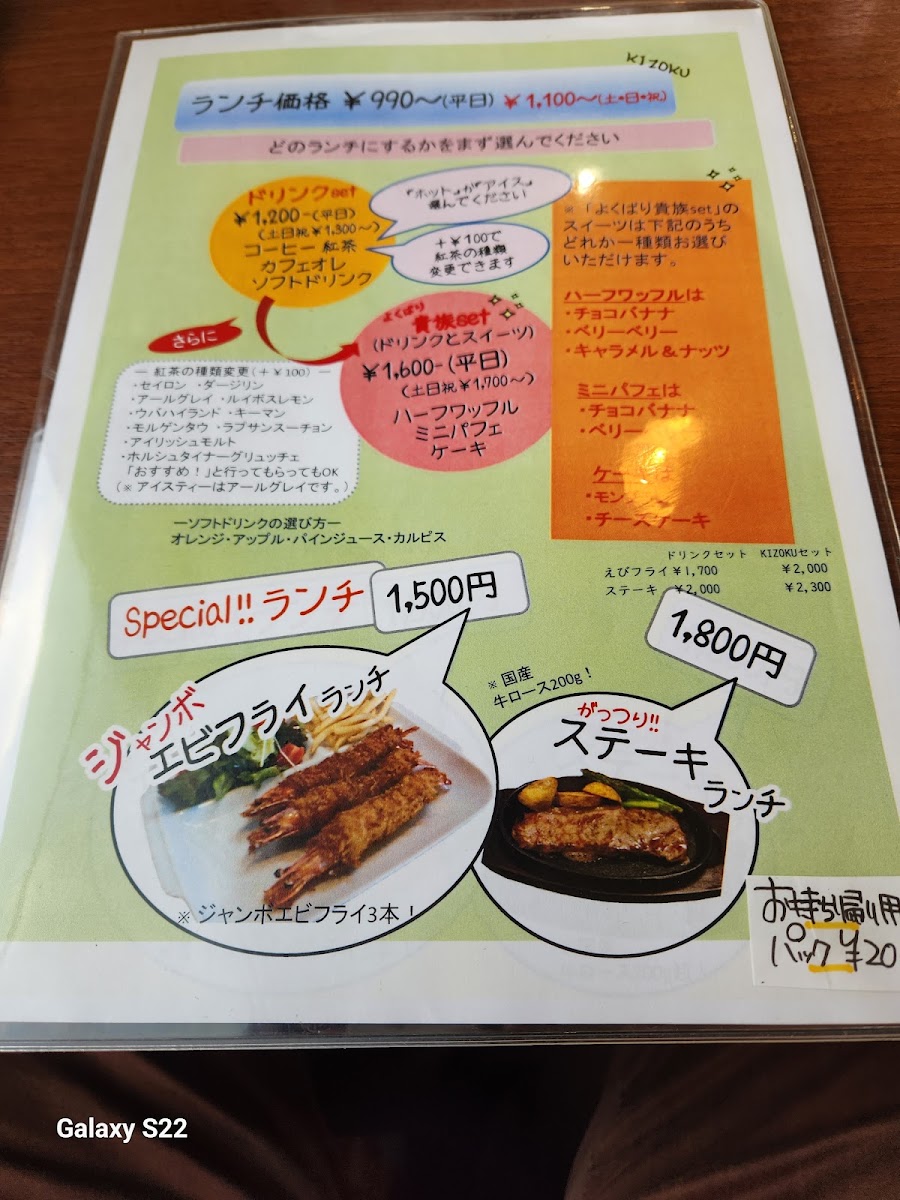 KIZOKU
ランチ価格 ¥990〜(平日) ¥1,100〜(土・日・祝)
どのランチにするかをまず選んでください
ドリンクset
¥1,200-(平日)
(土日祝¥1,300〜)
コーヒー 紅茶
カフェオレ
ソフトドリンク
『ホット』か『アイス』
選んでください
+¥100で
紅茶の種類
変更できます
さらに
よくばり
貴族set
(ドリンクとスイーツ)
¥1,600-(平日)
(土日祝¥1,700〜)
ハーフワッフル
ミニパフェ
ケーキ
― 紅茶の種類変更(+¥100) ―
・セイロン ・ダージリン
・アールグレイ ・ルイボスレモン
・ウバハイランド ・キーマン
・モルゲンタウ ・ラプサンスーチョン
・アイリッシュモルト
・ホルシュタイナーグリュッチェ
「おすすめ!」と行ってもらってもOK
(※アイスティーはアールグレイです。)
※「よくばり貴族set」の
スイーツは下記のうち
どれか一種類お選び
いただけます。
ハーフワッフルは
・チョコバナナ
・ベリーベリー
・キャラメル&ナッツ
ミニパフェは
・チョコバナナ
・ベリー
・チーズケーキ
―ソフトドリンクの選び方―
オレンジ・アップル・パインジュース・カルピス
ドリンクセット KIZOKUセット
えびフライ ¥1,700 ¥2,000
ステーキ ¥2,000 ¥2,300
Special!! ランチ
1,500円
ジャンボ
エビフライランチ
※ ジャンボエビフライ3本!
1,800円
※ 国産
牛ロース200g!
がっつり!!
ステーキ
ランチ
お持ち帰り用
パック ¥20
Galaxy S22